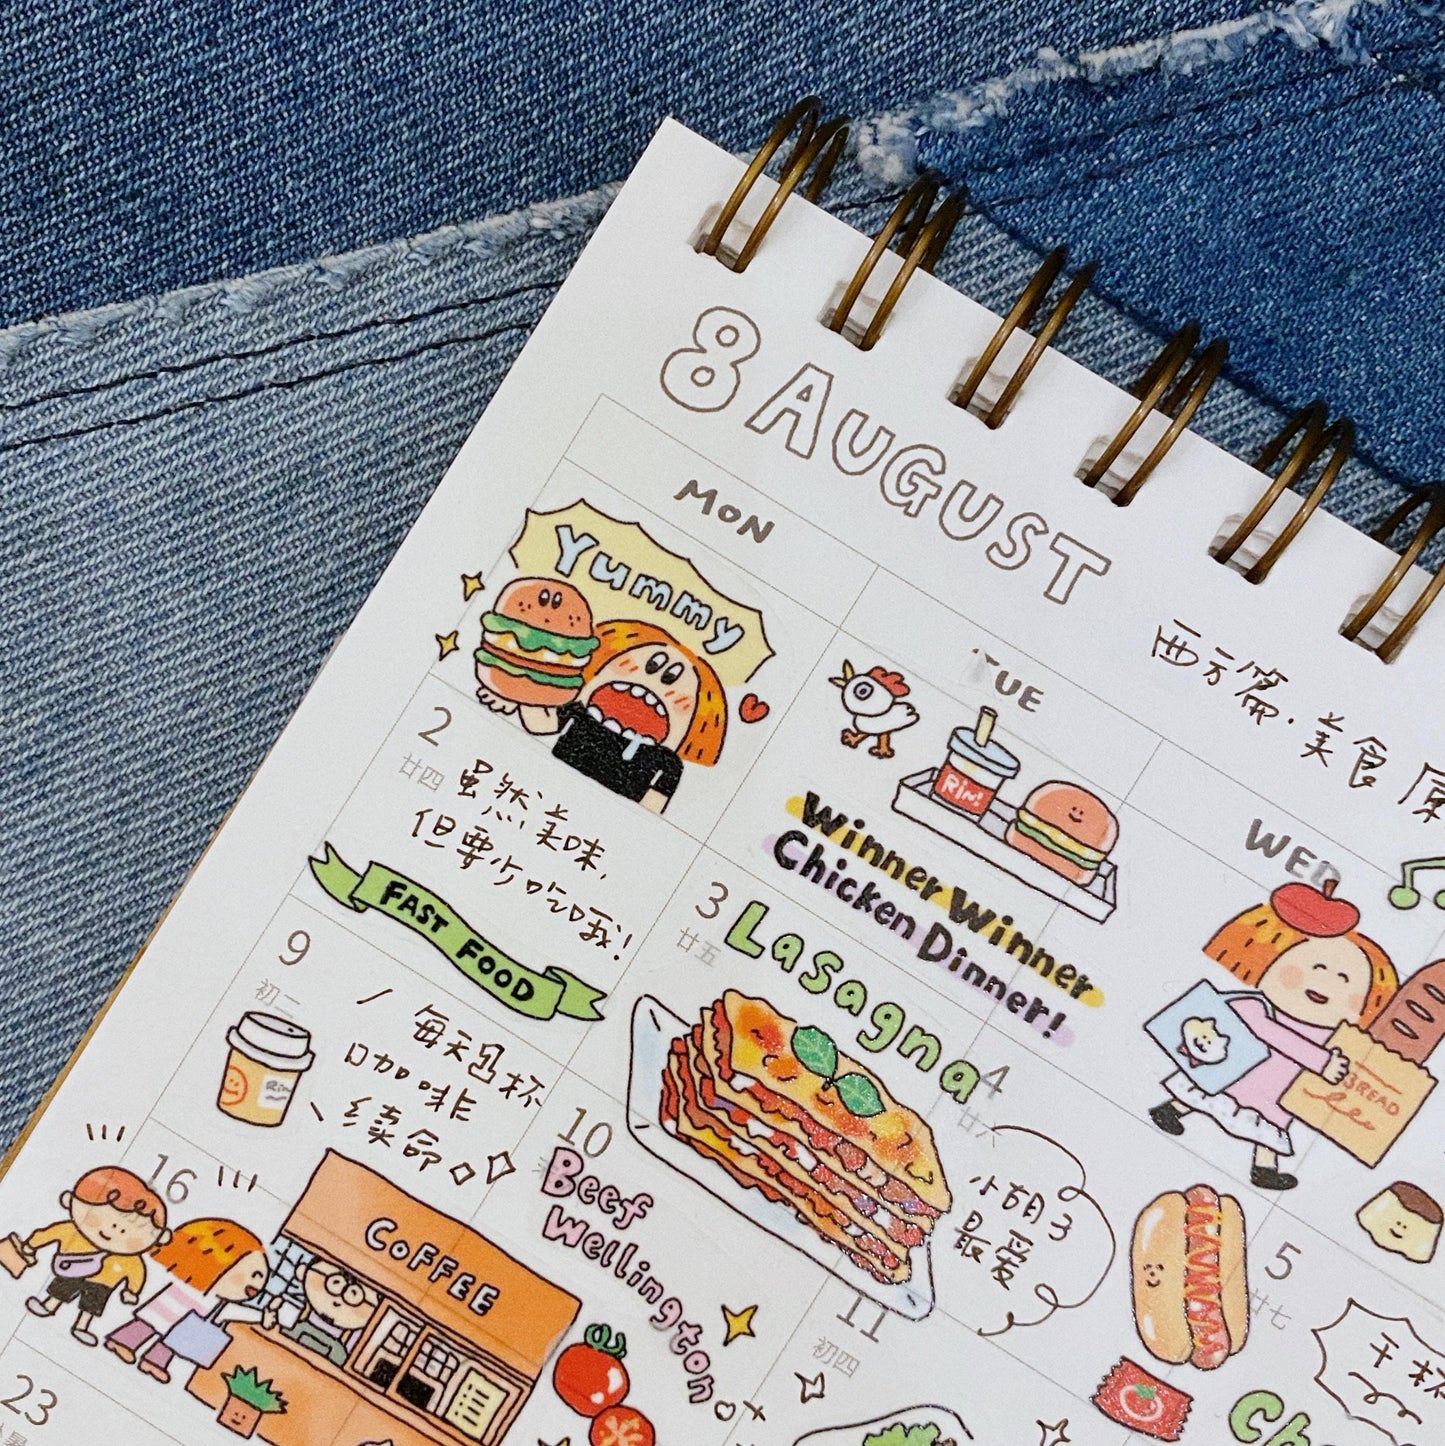 8 August
西方篇.美食
MON
TUE
WED
Yummy
Rin!
Winner Winner
Chicken Dinner!
2
廿四
虽然美味,
但要少吃哦!
FAST FOOD
3
廿五
Lasagna
4
廿六
小胡子
最爱
BREAD
9
初二
Rin
每天包杯
咖啡
续命
10
Beef
Wellington
11
初四
5
廿七
干杯
16
COFFEE
23